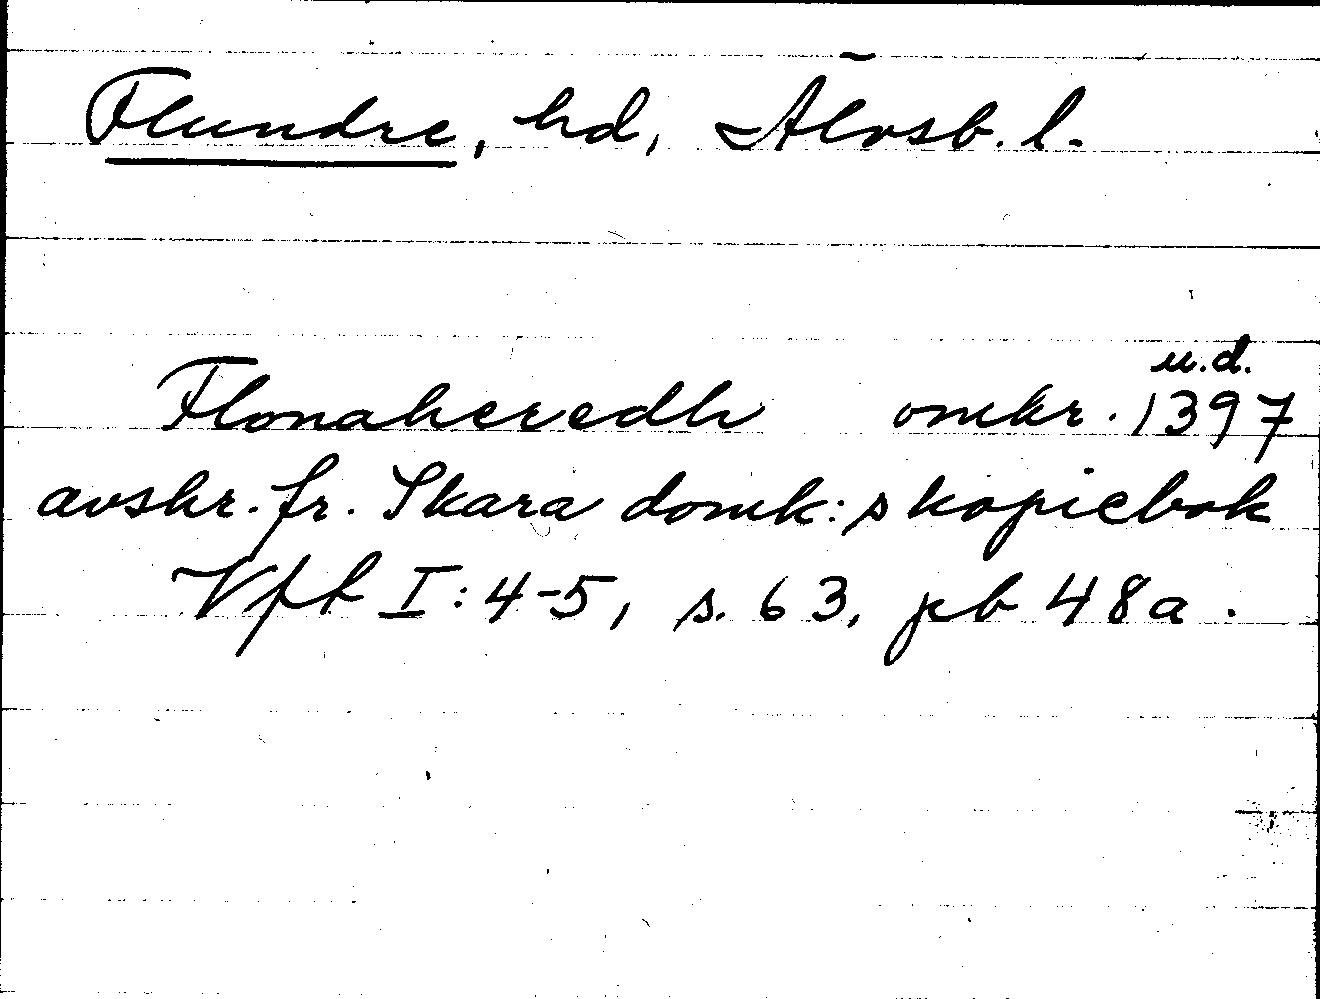 Flundre, hd, Älvsb. l.
u.d.
Flonaheredh omkr. 1397
avskr. fr. Skara domk:s kopiebok
Vft I: 4-5, s. 63, pb 48a.